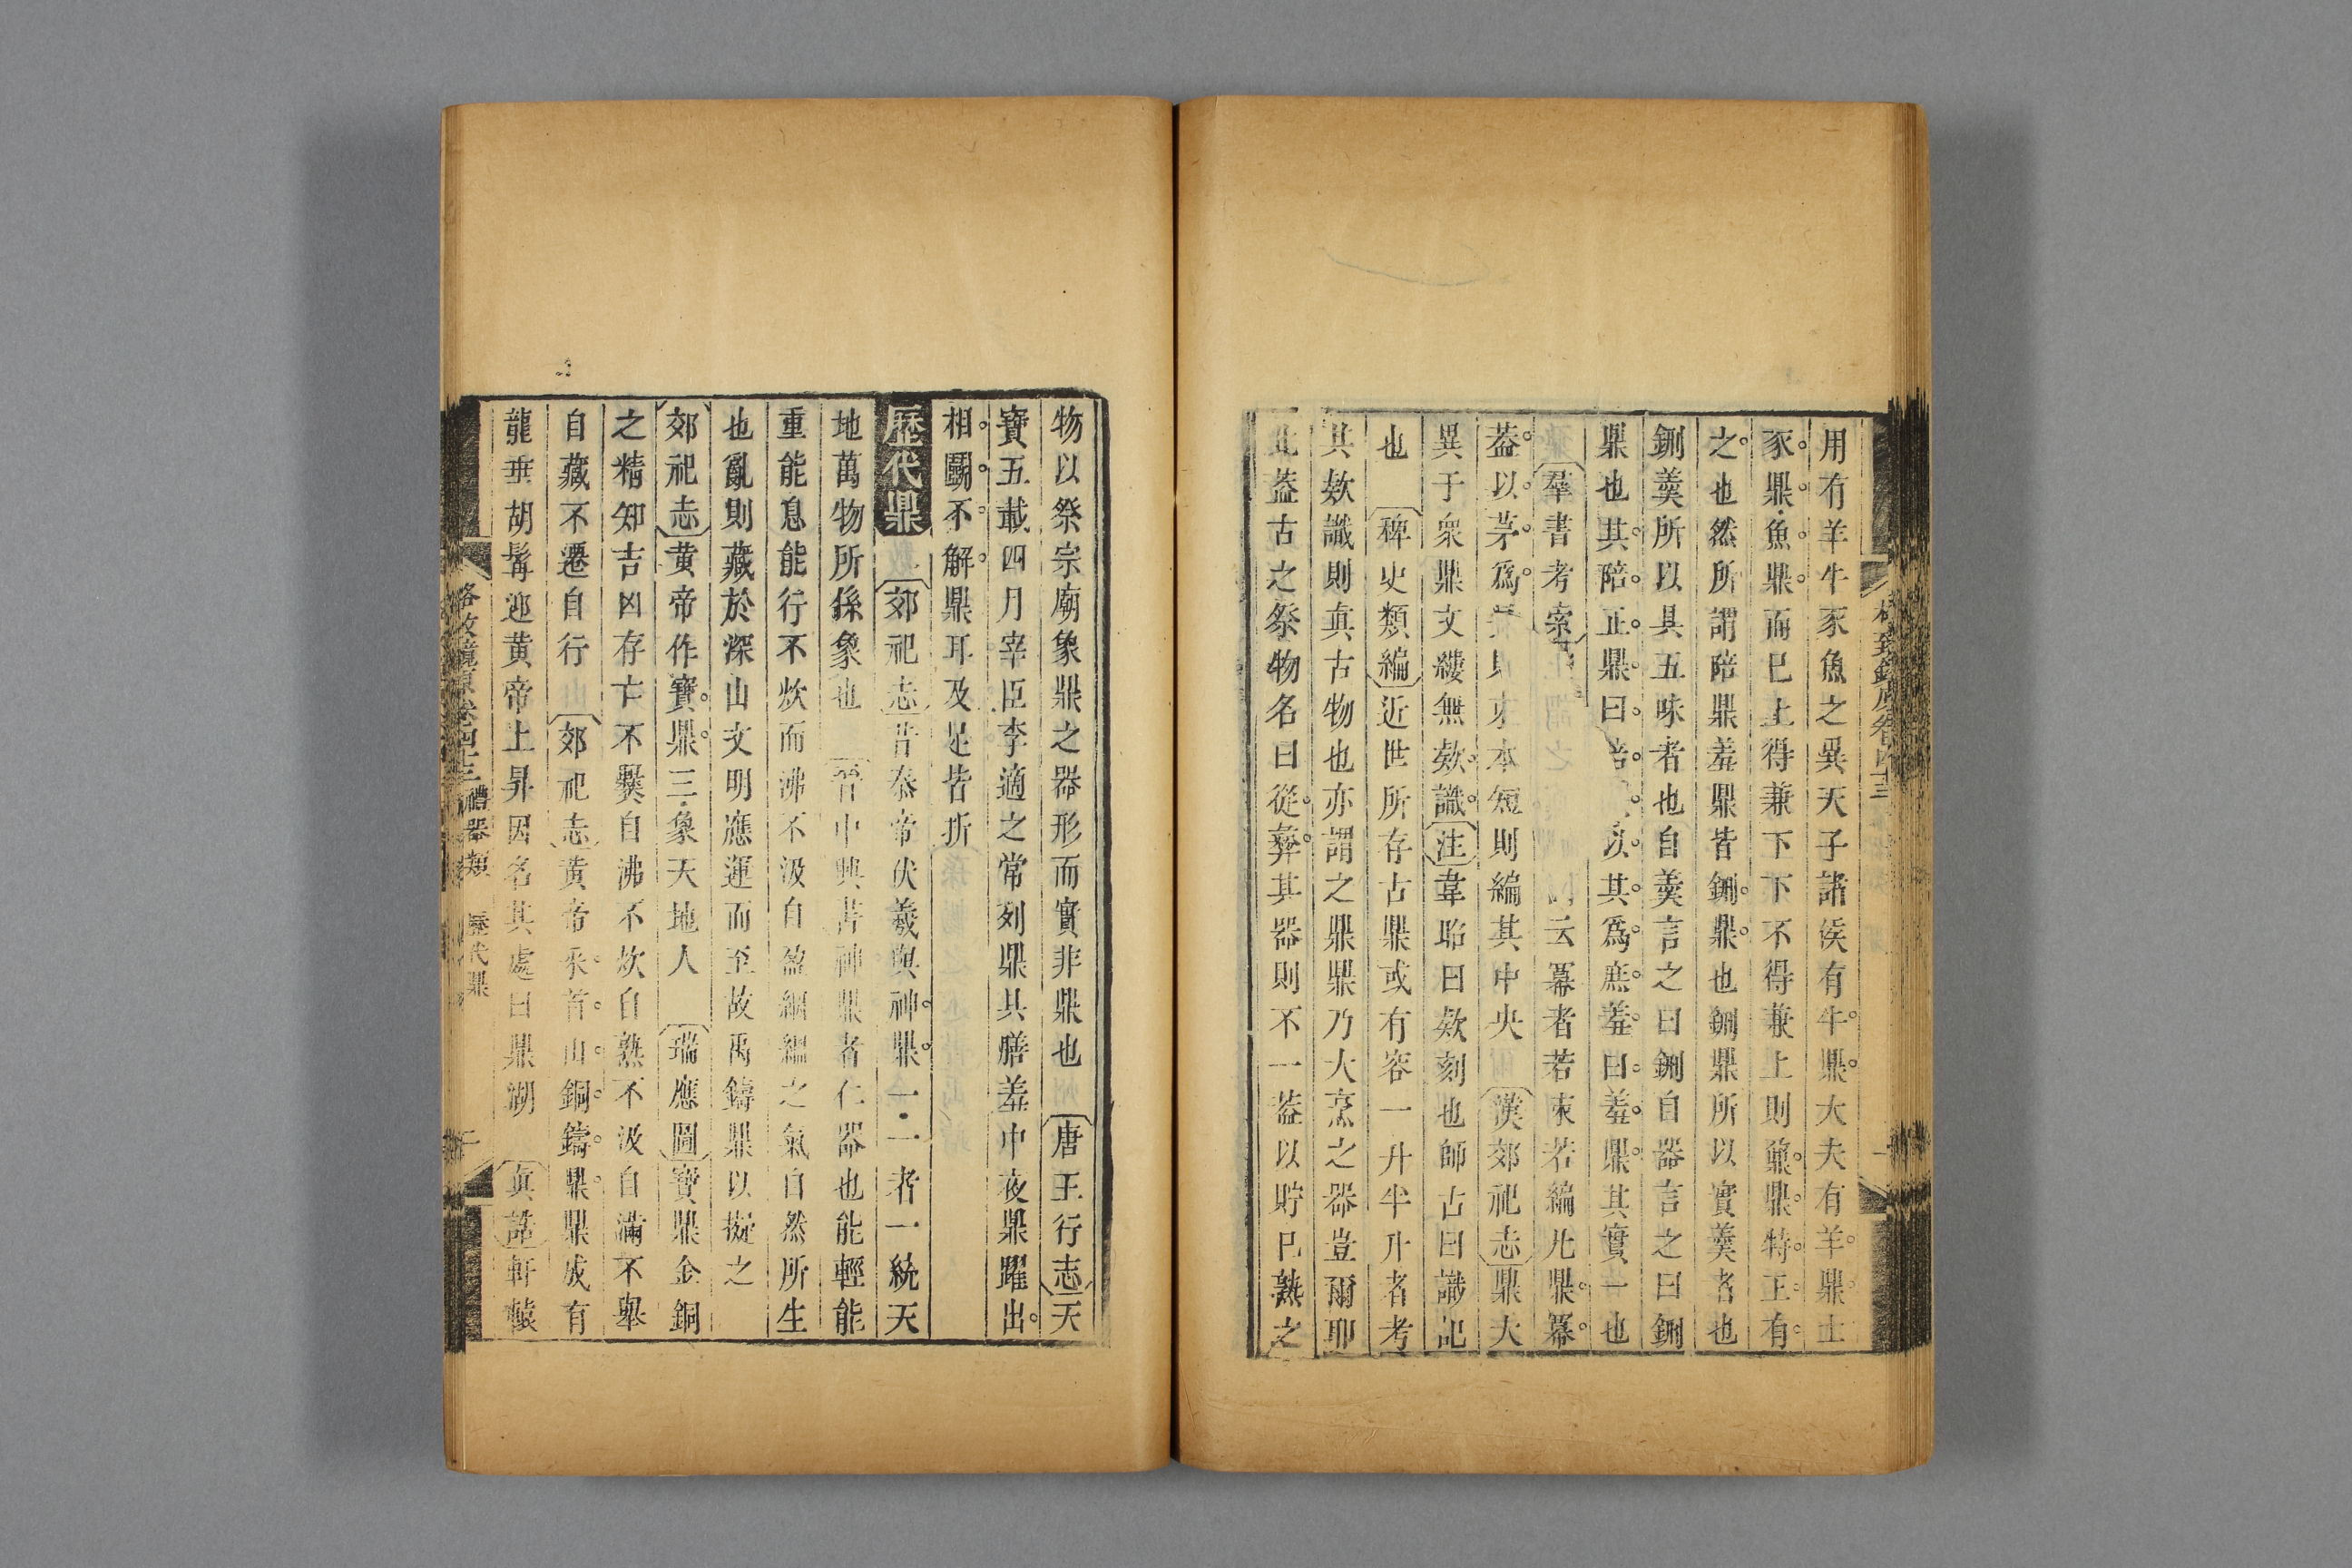 用有羊牛豕魚之異天子諸侯有牛鼎大夫有羊鼎士
豕鼎魚鼎而已上得兼下下不得兼上則鼐鼎特王有
之也然所謂陪鼎羞鼎皆鉶鼎也鉶鼎所以實羹者也
鉶羹所以具五味者也自羹言之曰鉶羹自器言之曰鉶
鼎也其陪正鼎曰以其為庶羞曰羞鼎其實一也
羣書考索云冪者若束若編凡鼎冪
葢以茅為本短則編其中央漢郊祀志鼎大
異于衆鼎文縷無欵識注韋昭曰欵刻也師古曰識記
也稗史類編近世所存古鼎或有容一升半升者考
其欵識則真古物也亦謂之鼎鼎乃大烹之器豈爾耶
此葢古之祭物名曰從彝其器則不一葢以貯已熟之
物以祭宗廟象鼎之器形而實非鼎也唐五行志天
寶五載四月宰臣李適之常列鼎具膳羞中夜鼎躍出
相鬬不解鼎耳及足皆折
歷代鼎
郊祀志昔泰帝伏羲與神鼎一一者一統天
地萬物所係象也晉中興書神鼎者仁器也能輕能
重能息能行不炊而沸不汲自盈絪縕之氣自然所生
也亂則藏於深山文明應運而至故禹鑄鼎以擬之
郊祀志黄帝作寶鼎三象天地人瑞應圖寶鼎金銅
之精知吉凶存亡不爨自沸不炊自熟不汲自滿不舉
自藏不遷自行郊祀志黄帝采首山銅鑄鼎鼎成有
龍垂胡髯迎黄帝上昇因名其處曰鼎湖真誥軒轅
格致鏡原卷四十三禮器類 歷代鼎